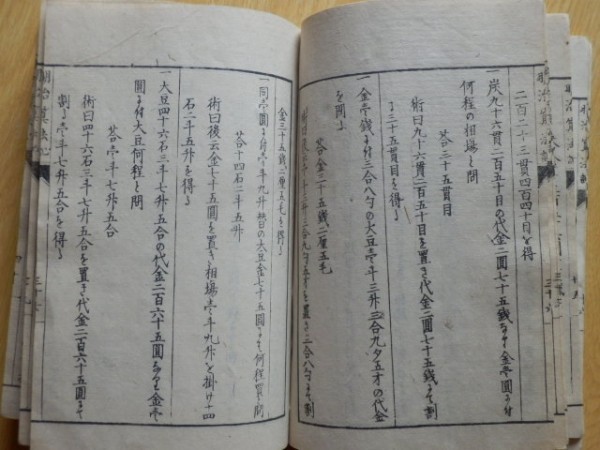 二百二十三貫四百四十目を得
一炭九十六貫二百五十目の代金二圓七十五錢なり金壱圓に付
何程の相場と問
答三十五貫目
術曰九十六貫二百五十目を置き代金二圓七十五錢にて割
る三十五貫目を得る
一金壱錢に付二合八勺の大豆壱斗三升三合九夕五才の代金
を問
答金三十五錢二厘五毛
金三十五錢二厘五毛を得る
答十四石二斗五升
術曰後云金七十五圓を置き相場壱斗九升を掛け十四
石二斗五升を得る
一大豆四十六石三斗七升五合の代金二百六十五圓なり金壱
圓に付大豆何程と問
答壱斗七升五合
術曰四十六石三斗七升五合を置き代金二百六十五圓にて
割る壱斗七升五合を得る